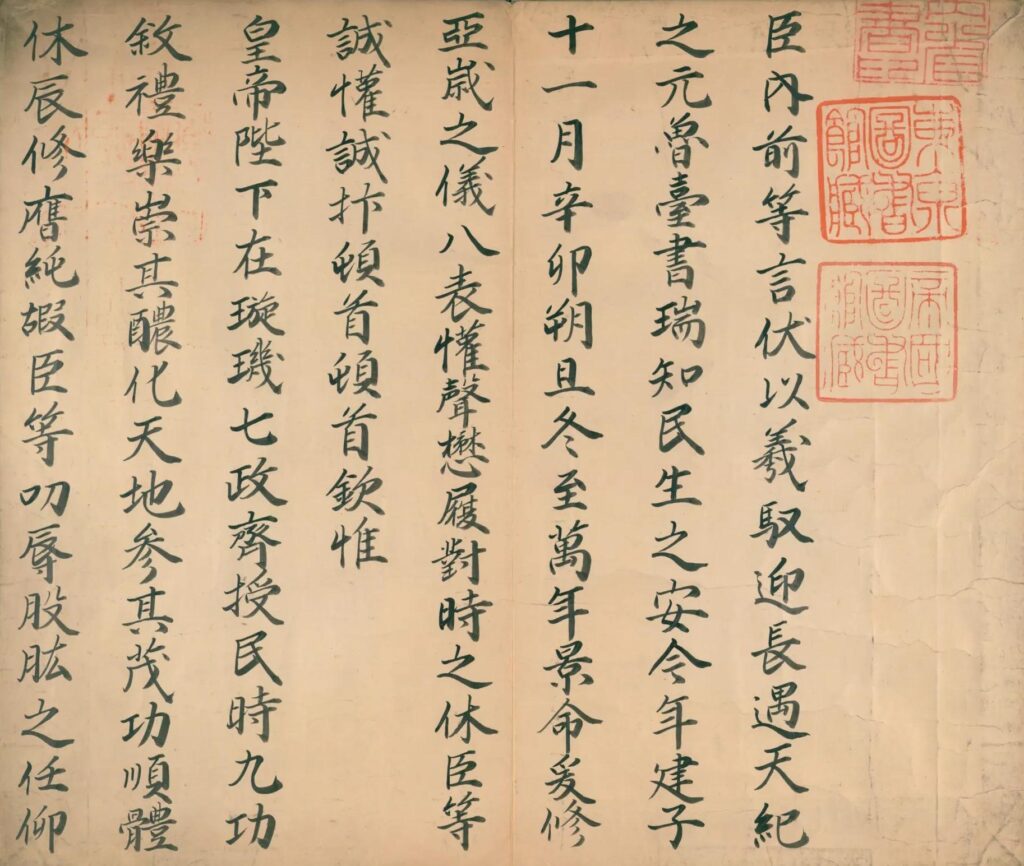 臣内前等言伏以羲馭迎長遇天紀
之元魯臺書瑞知民生之安今年建子
十一月辛卯朔旦冬至萬年景命爰修
亞歲之儀八表懽聲懋履對時之休臣等
誠懽誠抃頓首頓首欽惟
皇帝陛下在璇璣七政齊授民時九功
敘禮樂崇其醲化天地參其茂功順體
休辰修膺純嘏臣等叨辱股肱之任仰
東京圖書館藏
帝國圖書館藏